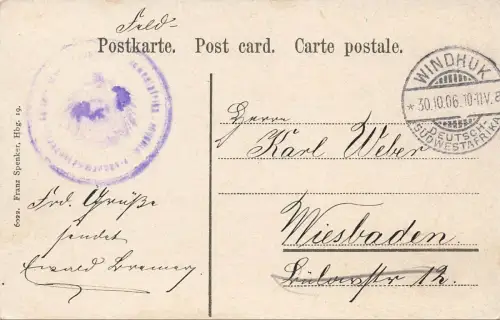 Feld-
Postkarte. Post card. Carte postale.
WINDHUK
* 30.10.06. 10-11V. a
DEUTSCH-
SÜDWESTAFRIKA
Herrn
Karl Weber
Wiesbaden.
Bülowstr 12.
Frd. Grüße
sendet
Ewald Bremer,
6022. Franz Spenker, Hbg. 19.